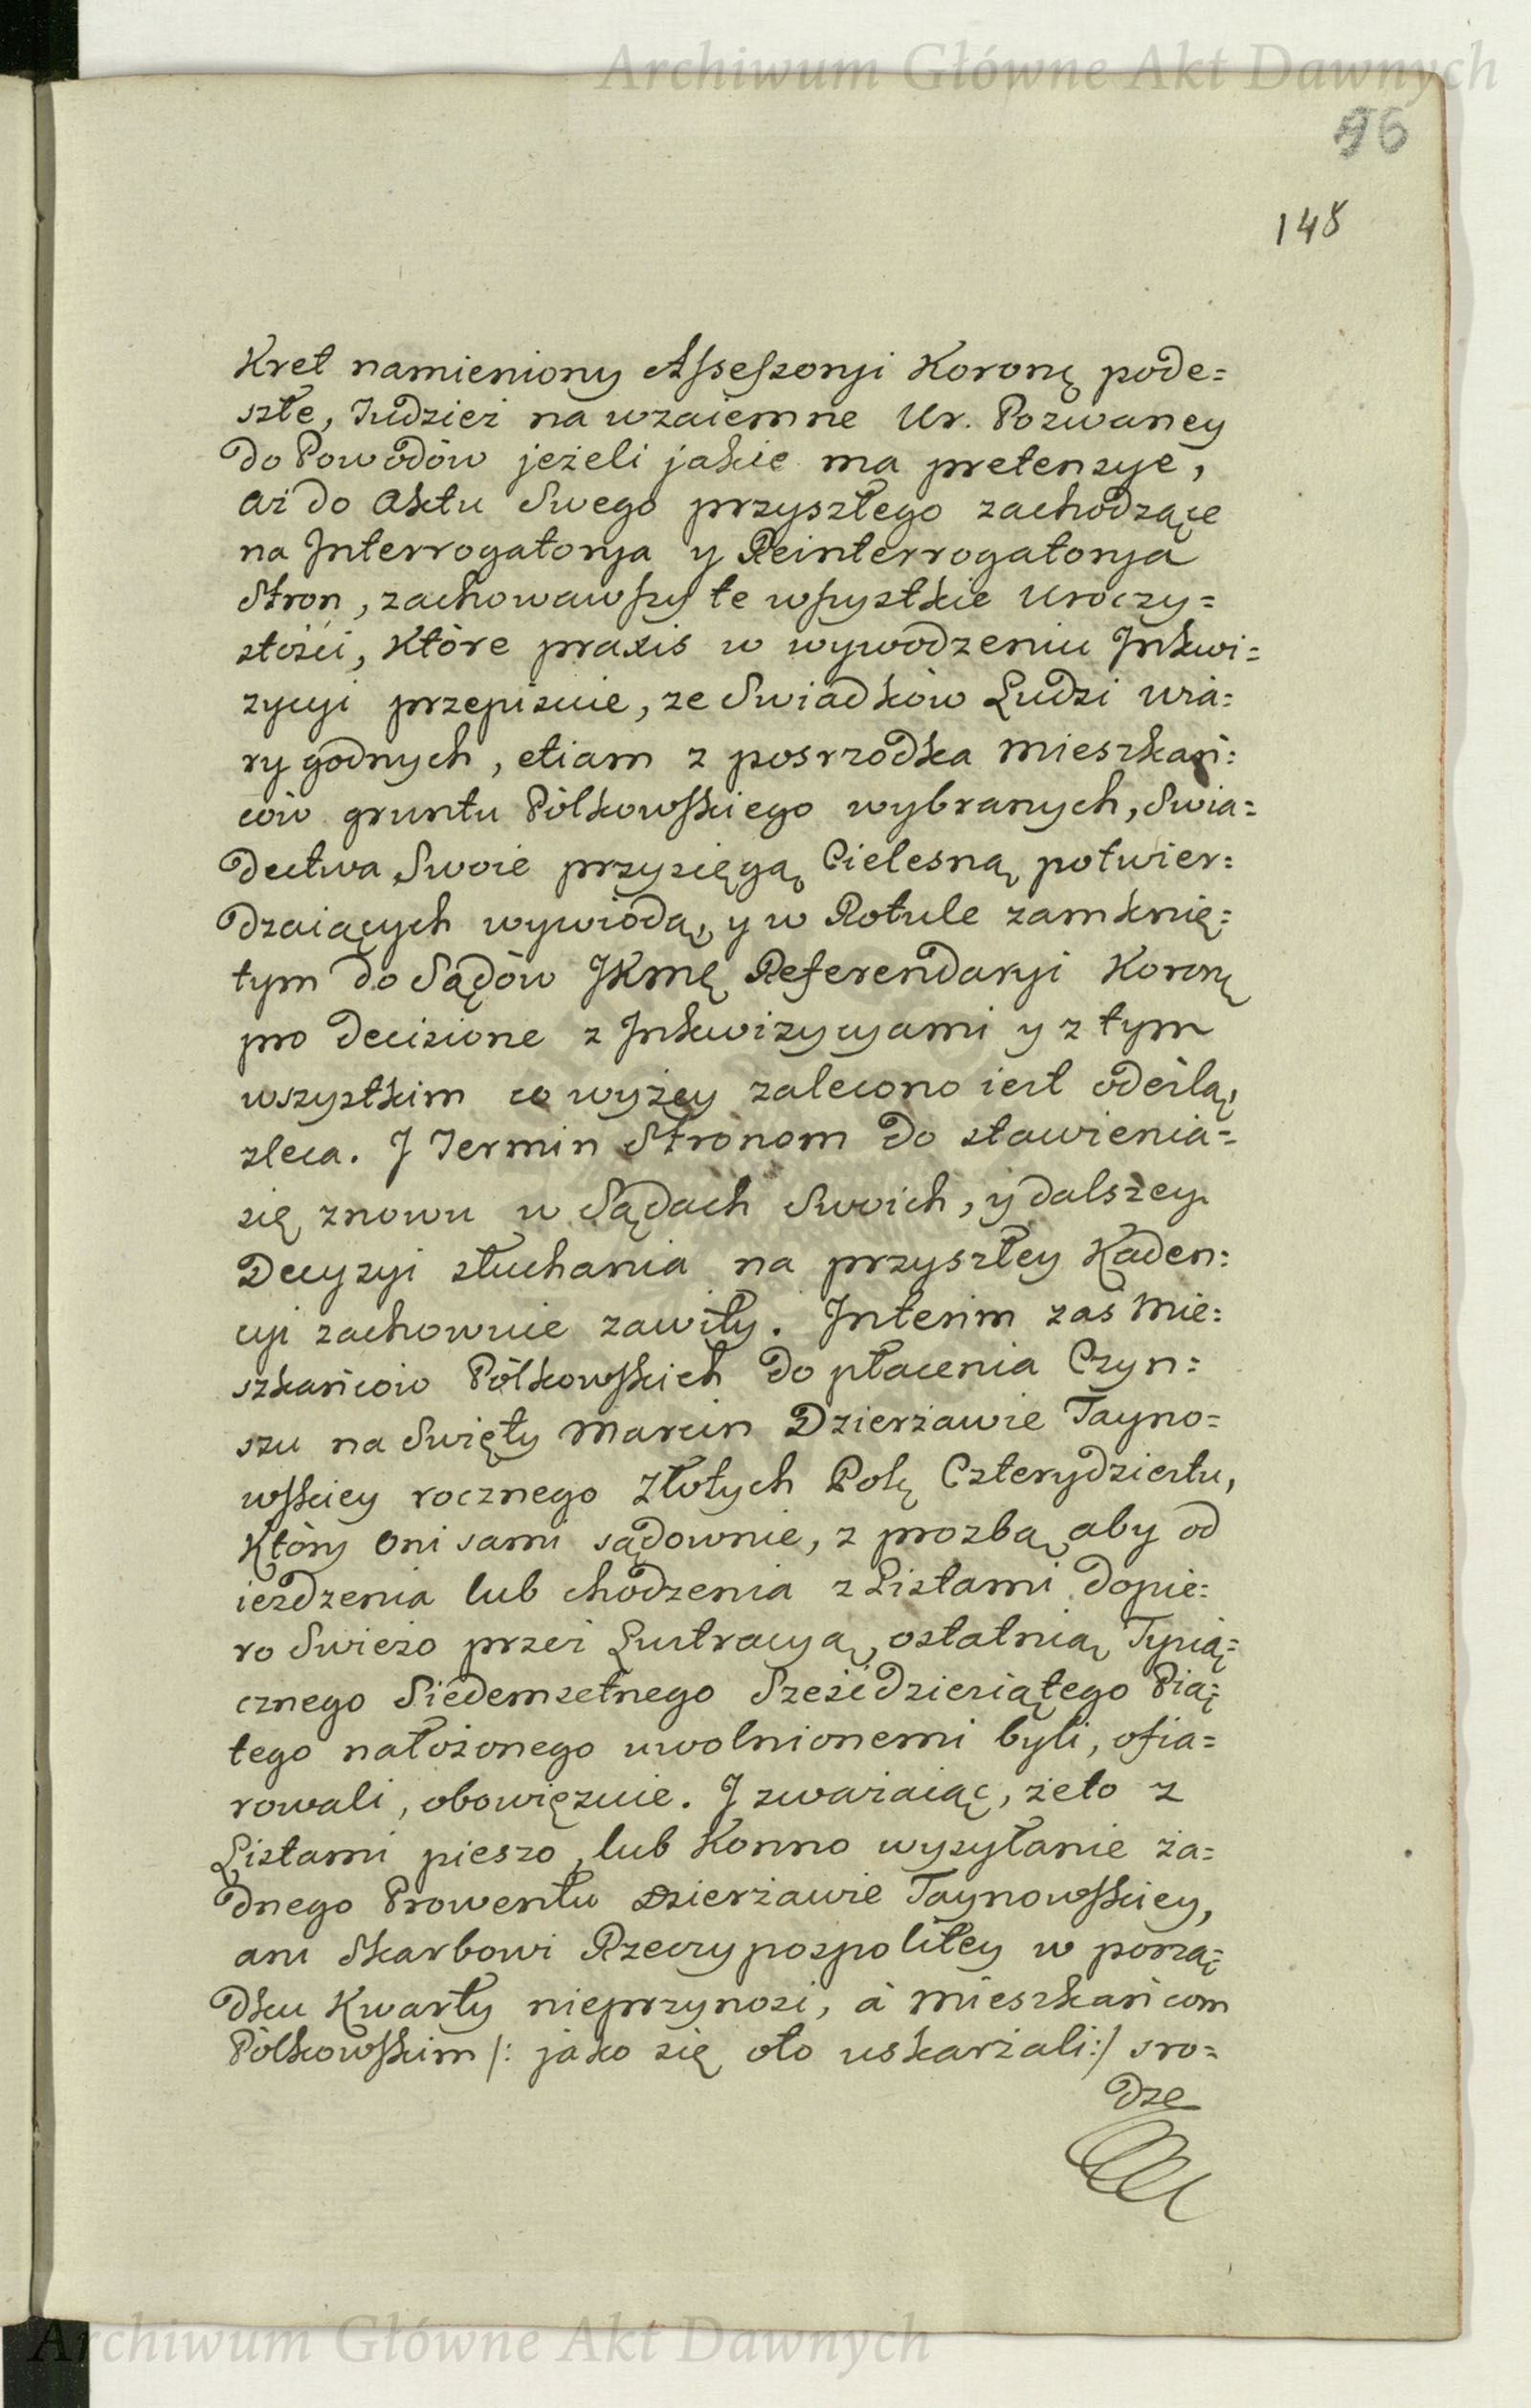 Archiwum Główne Akt Dawnych
96
148
Kret namieniony Assessoryi Koronę pode=
szłe, Tudzież na wzaiemne Ur. Pozwaney
do Powodów jeżeli jakie ma pretensye,
aż do Aktu Swego przyszłego zachodzące
na Interrogatorya y Reinterrogatorya
Stron, zachowawszy te wszystkie Uroczy=
stości, które praxis w wywodzeniu Inkwi=
zycyi przepisuie, ze Swiadków Ludzi wia=
ry godnych, etiam z posrzodka mieszkań=
ców gruntu Pólkowskiego wybranych, Swia=
dectwa Swoie przysięgą Cielesną potwier=
dzaiących wywiodą, y w Rotule zamknię=
tym do Sądów JKmę Referendaryi Koronę
pro decisione z Inkwizycyami y z tym
wszystkim co wyżey zalecono iest odeślą,
zleca. J Termin Stronom do stawienia=
się znowu w Sądach Swoich, y dalszey
Decyzyi słuchania na przyszłey Kaden=
cyi zachowuie zawity. Interim zaś Mie=
szkańców Pólkowskich do płacenia Czyn=
szu na Swięty Marcin Dzierżawie Tayno=
wskiey rocznego Złotych Polę Czterydziestu,
który oni sami sądownie, z prozbą, aby od
ieżdzenia lub chodzenia z Listami dopie=
ro Swieżo przez Lustracyą ostatnią Tysią=
cznego Siedemsetnego Sześćdziesiątego Pią=
tego nałożonego uwolnionemi byli, ofia=
rowali, obowięzuie. J zwaźaiąc, że to z
Listami pieszo, lub Konno wysyłanie ża=
dnego Prowentu Dzierżawie Taynowskiey,
ani Skarbowi Rzeczypospolitey w porzą=
dku Kwarty nieprzynosi, á mieszkańcom
Pólkowskim /: jako się oto uskarżali :/ sro=
dze
Archiwum Główne Akt Dawnych